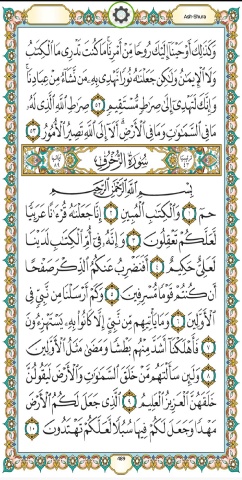 Ash-Shura
وَكَذَٰلِكَ أَوْحَيْنَا إِلَيْكَ رُوحًا مِنْ أَمْرِنَا مَا كُنْتَ تَدْرِي مَا الْكِتَابُ
وَلَا الْإِيمَانُ وَلَٰكِنْ جَعَلْنَاهُ نُورًا نَهْدِي بِهِ مَنْ نَشَاءُ مِنْ عِبَادِنَا
وَإِنَّكَ لَتَهْدِي إِلَىٰ صِرَاطٍ مُسْتَقِيمٍ ٥٢ صِرَاطِ اللَّهِ الَّذِي لَهُ
مَا فِي السَّمَاوَاتِ وَمَا فِي الْأَرْضِ أَلَا إِلَى اللَّهِ تَصِيرُ الْأُمُورُ ٥٣
سُورَةُ الزُّخْرُفِ
بِسْمِ اللَّهِ الرَّحْمَٰنِ الرَّحِيمِ
حم ١ وَالْكِتَابِ الْمُبِينِ ٢ إِنَّا جَعَلْنَاهُ قُرْآنًا عَرَبِيًّا
لَعَلَّكُمْ تَعْقِلُونَ ٣ وَإِنَّهُ فِي أُمِّ الْكِتَابِ لَدَيْنَا
لَعَلِيٌّ حَكِيمٌ ٤ أَفَنَضْرِبُ عَنْكُمُ الذِّكْرَ صَفْحًا
أَنْ كُنْتُمْ قَوْمًا مُسْرِفِينَ ٥ وَكَمْ أَرْسَلْنَا مِنْ نَبِيٍّ فِي
الْأَوَّلِينَ ٦ وَمَا يَأْتِيهِمْ مِنْ نَبِيٍّ إِلَّا كَانُوا بِهِ يَسْتَهْزِئُونَ
٧ فَأَهْلَكْنَا أَشَدَّ مِنْهُمْ بَطْشًا وَمَضَىٰ مَثَلُ الْأَوَّلِينَ
٨ وَلَئِنْ سَأَلْتَهُمْ مَنْ خَلَقَ السَّمَاوَاتِ وَالْأَرْضَ لَيَقُولُنَّ
خَلَقَهُنَّ الْعَزِيزُ الْعَلِيمُ ٩ الَّذِي جَعَلَ لَكُمُ الْأَرْضَ
مَهْدًا وَجَعَلَ لَكُمْ فِيهَا سُبُلًا لَعَلَّكُمْ تَهْتَدُونَ ١٠
489